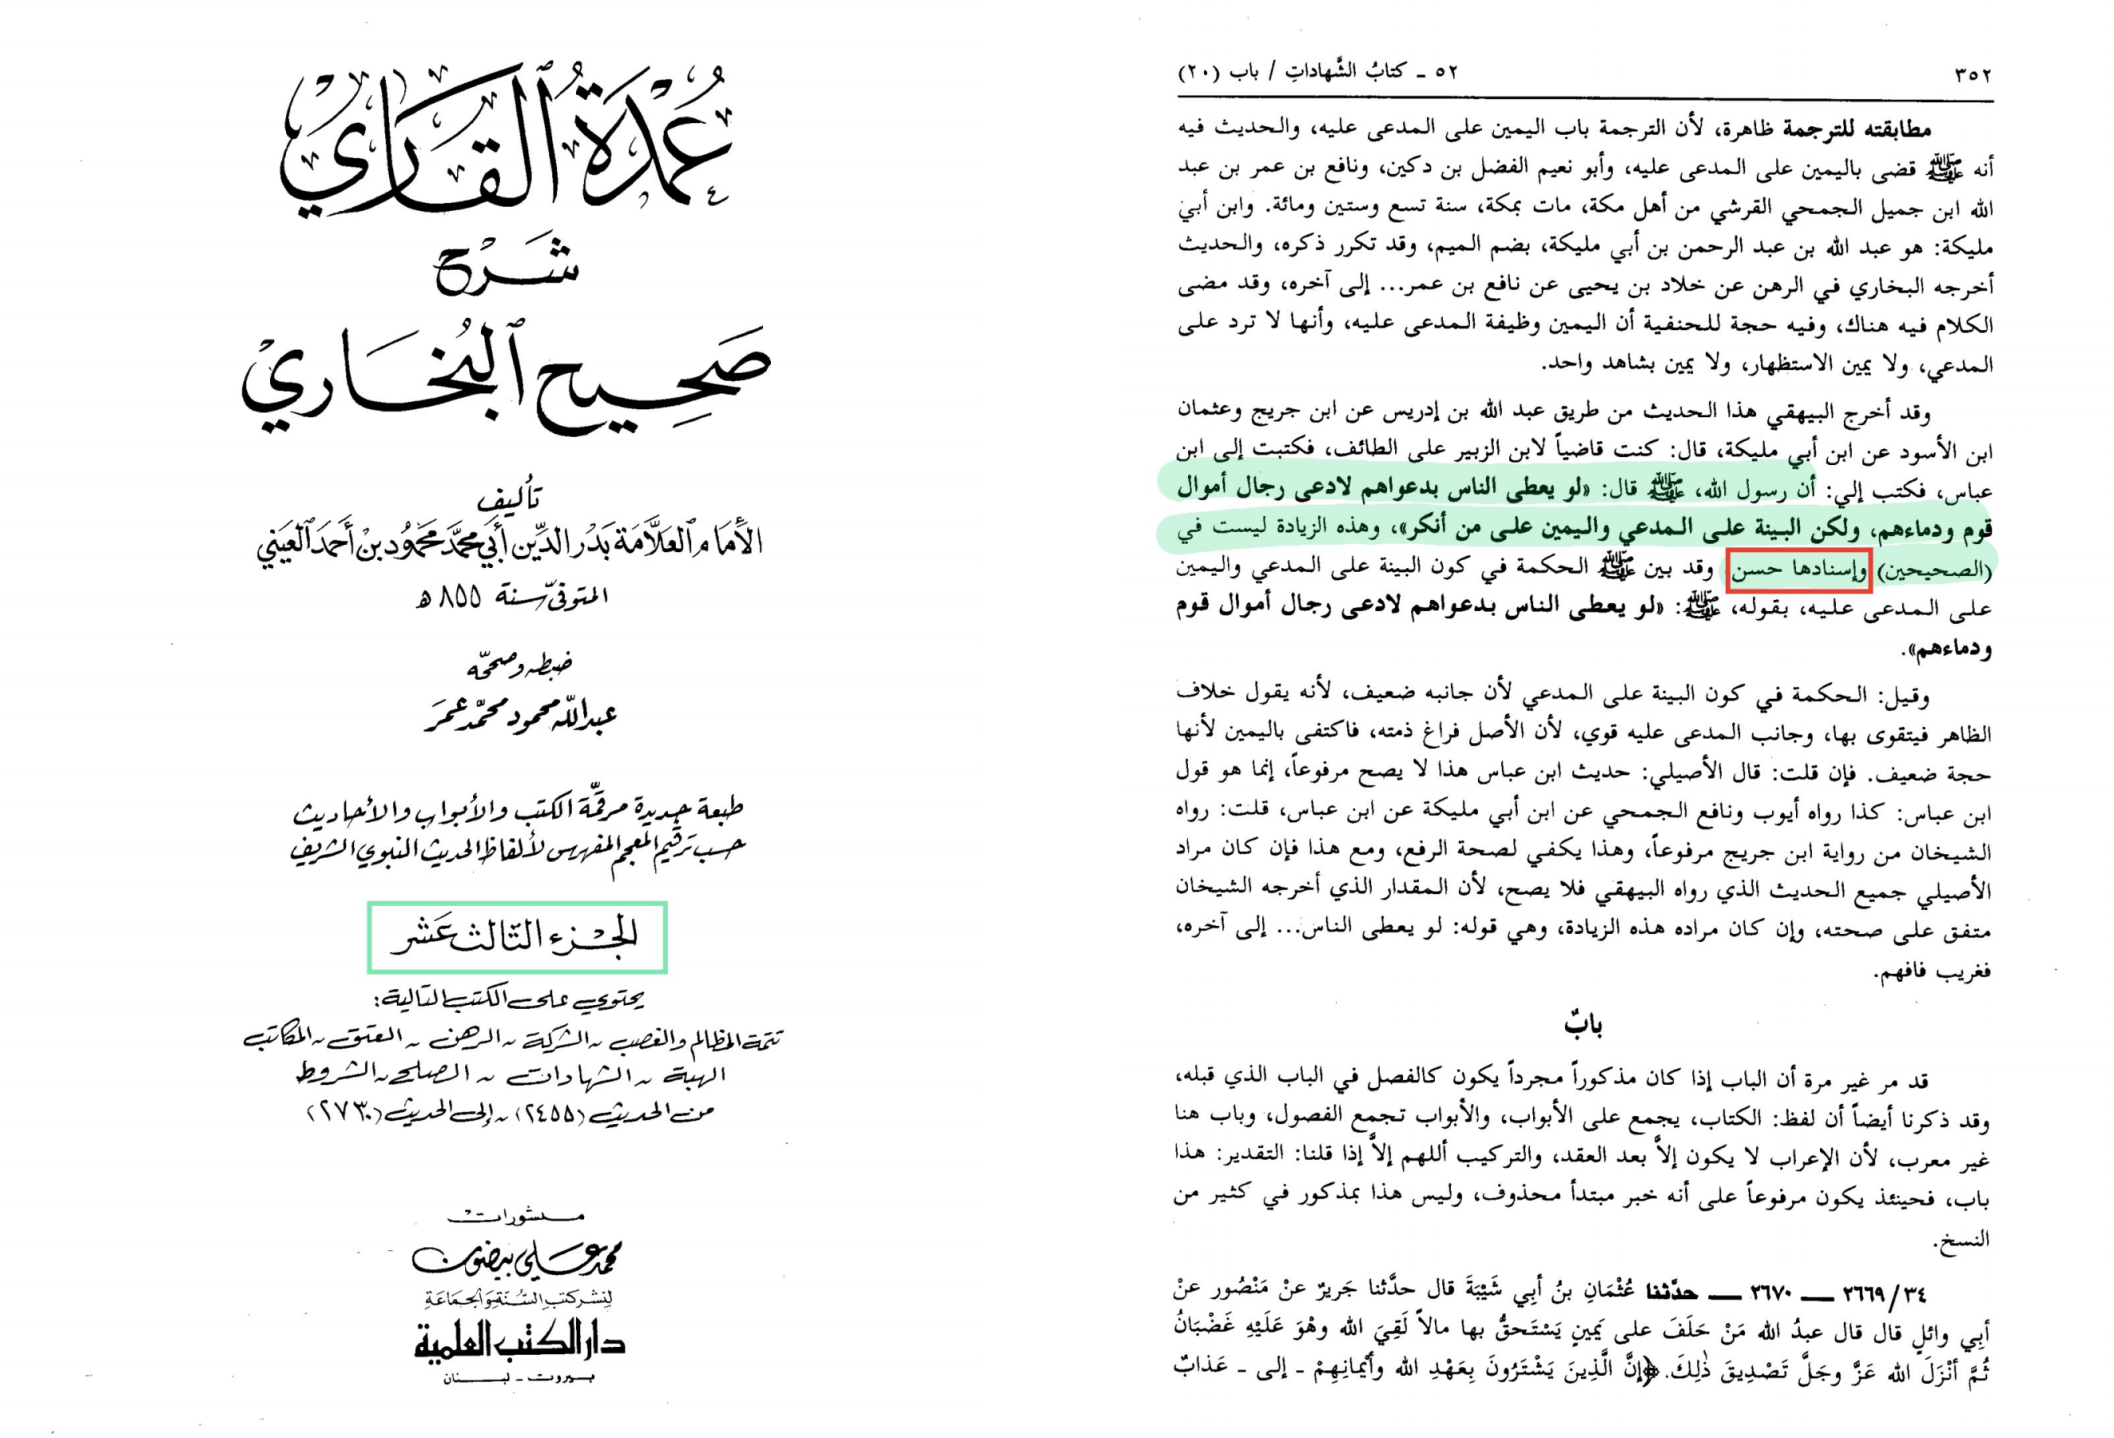 عُمْدَةُ ٱلْقَارِي
شَرْح
صَحِيح ٱلْبُخَارِي
تأليف
الأمام العلّامة بدر الدّين أبي محمّد محمود بن أحمد العيني
المتوفّى سنة ٨٥٥ هـ
ضبطه وصحّحه
عبد الله محمود محمّد عمر
طبعة جديدة مرقّمة الكتب والأبواب والأحاديث
حسب ترقيم المعجم المفهرس لألفاظ الحديث النبوي الشريف
الجزء الثالث عشر
يحتوي على الكتب التالية:
تتمة المظالم والغصب - الشركة - الرهن - العتق - المكاتب
الهبة - الشهادات - الصلح - الشروط
من الحديث (٢٤٥٥) - إلى الحديث (٢٧٣٠)
منشورات
محمد علي بيضون
لنشر كتب السنة والجماعة
دار الكتب العلمية
بيروت - لبنان
٣٥٢
٥٢ - كتابُ الشَّهاداتِ / باب (٢٠)
مطابقته للترجمة ظاهرة، لأن الترجمة باب اليمين على المدعى عليه، والحديث فيه
أنه ﷺ قضى باليمين على المدعى عليه، وأبو نعيم الفضل بن دكين، ونافع بن عمر بن عبد
الله ابن جميل الجمحي القرشي من أهل مكة، مات بمكة، سنة تسع وستين ومائة. وابن أبي
مليكة: هو عبد الله بن عبد الرحمن بن أبي مليكة، بضم الميم، وقد تكرر ذكره، والحديث
أخرجه البخاري في الرهن عن خلاد بن يحيى عن نافع بن عمر... إلى آخره، وقد مضى
الكلام فيه هناك، وفيه حجة للحنفية أن اليمين وظيفة المدعى عليه، وأنها لا ترد على
المدعي، ولا يمين الاستظهار، ولا يمين بشاهد واحد.
وقد أخرج البيهقي هذا الحديث من طريق عبد الله بن إدريس عن ابن جريج وعثمان
ابن الأسود عن ابن أبي مليكة، قال: كنت قاضياً لابن الزبير على الطائف، فكتبت إلى ابن
عباس، فكتب إلي: أن رسول الله، ﷺ قال: «لو يعطى الناس بدعواهم لادعى رجال أموال
قوم ودماءهم، ولكن البينة على المدعي واليمين على من أنكر»، وهذه الزيادة ليست في
(الصحيحين) وإسنادها حسن وقد بين ﷺ الحكمة في كون البينة على المدعي واليمين
على المدعى عليه، بقوله، ﷺ: «لو يعطى الناس بدعواهم لادعى رجال أموال قوم
ودماءهم».
وقيل: الحكمة في كون البينة على المدعي لأن جانبه ضعيف، لأنه يقول خلاف
الظاهر فيتقوى بها، وجانب المدعى عليه قوي، لأن الأصل فراغ ذمته، فاكتفى باليمين لأنها
حجة ضعيف. فإن قلت: قال الأصيلي: حديث ابن عباس هذا لا يصح مرفوعاً، إنما هو قول
ابن عباس: كذا رواه أيوب ونافع الجمحي عن ابن أبي مليكة عن ابن عباس، قلت: رواه
الشيخان من رواية ابن جريج مرفوعاً، وهذا يكفي لصحة الرفع، ومع هذا فإن كان مراد
الأصيلي جميع الحديث الذي رواه البيهقي فلا يصح، لأن المقدار الذي أخرجه الشيخان
متفق على صحته، وإن كان مراده هذه الزيادة، وهي قوله: لو يعطى الناس... إلى آخره،
فغريب فافهم.
بابٌ
قد مر غير مرة أن الباب إذا كان مذكوراً مجرداً يكون كالفصل في الباب الذي قبله،
وقد ذكرنا أيضاً أن لفظ: الكتاب، يجمع على الأبواب، والأبواب تجمع الفصول، وباب هنا
غير معرب، لأن الإعراب لا يكون إلاَّ بعد العقد، والتركيب أللهم إلاَّ إذا قلنا: التقدير: هذا
باب، فحينئذ يكون مرفوعاً على أنه خبر مبتدأ محذوف، وليس هذا بمذكور في كثير من
النسخ.
٣٤/ ٢٦٦٩ ــ ٢٦٧٠ ــ حدَّثنا عُثْمَانِ بنُ أبِي شَيْبَةَ قال حدَّثنا جَرِيرٌ عنْ مَنْصُور عنْ
أبِي وائلٍ قال قال عبدُ الله مَنْ حَلَفَ على يَمِينٍ يَسْتَحقُّ بها مالاً لَقِيَ الله وهْوَ عَلَيْهِ غَضْبَانُ
ثُمَّ أنْزَلَ الله عَزَّ وجَلَّ تَصْدِيقَ ذٰلِكَ. ﴿إنَّ الَّذِينَ يَشْتَرُونَ بِعَهْدِ الله وأيْمانِهِمْ - إلى - عَذابٌ